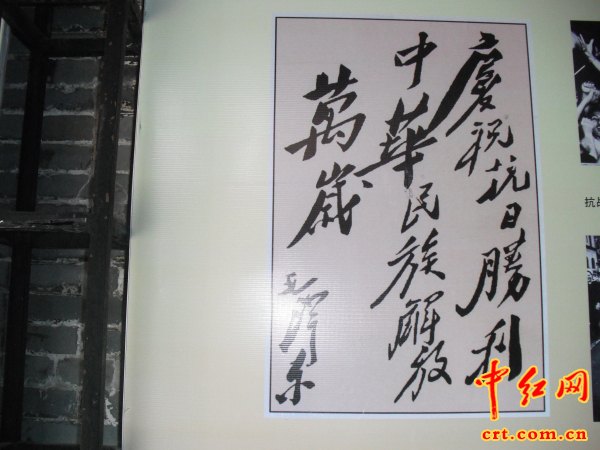 慶祝抗日勝利
中華民族解放
萬歲
毛澤东
抗战
中红网
crt.com.cn